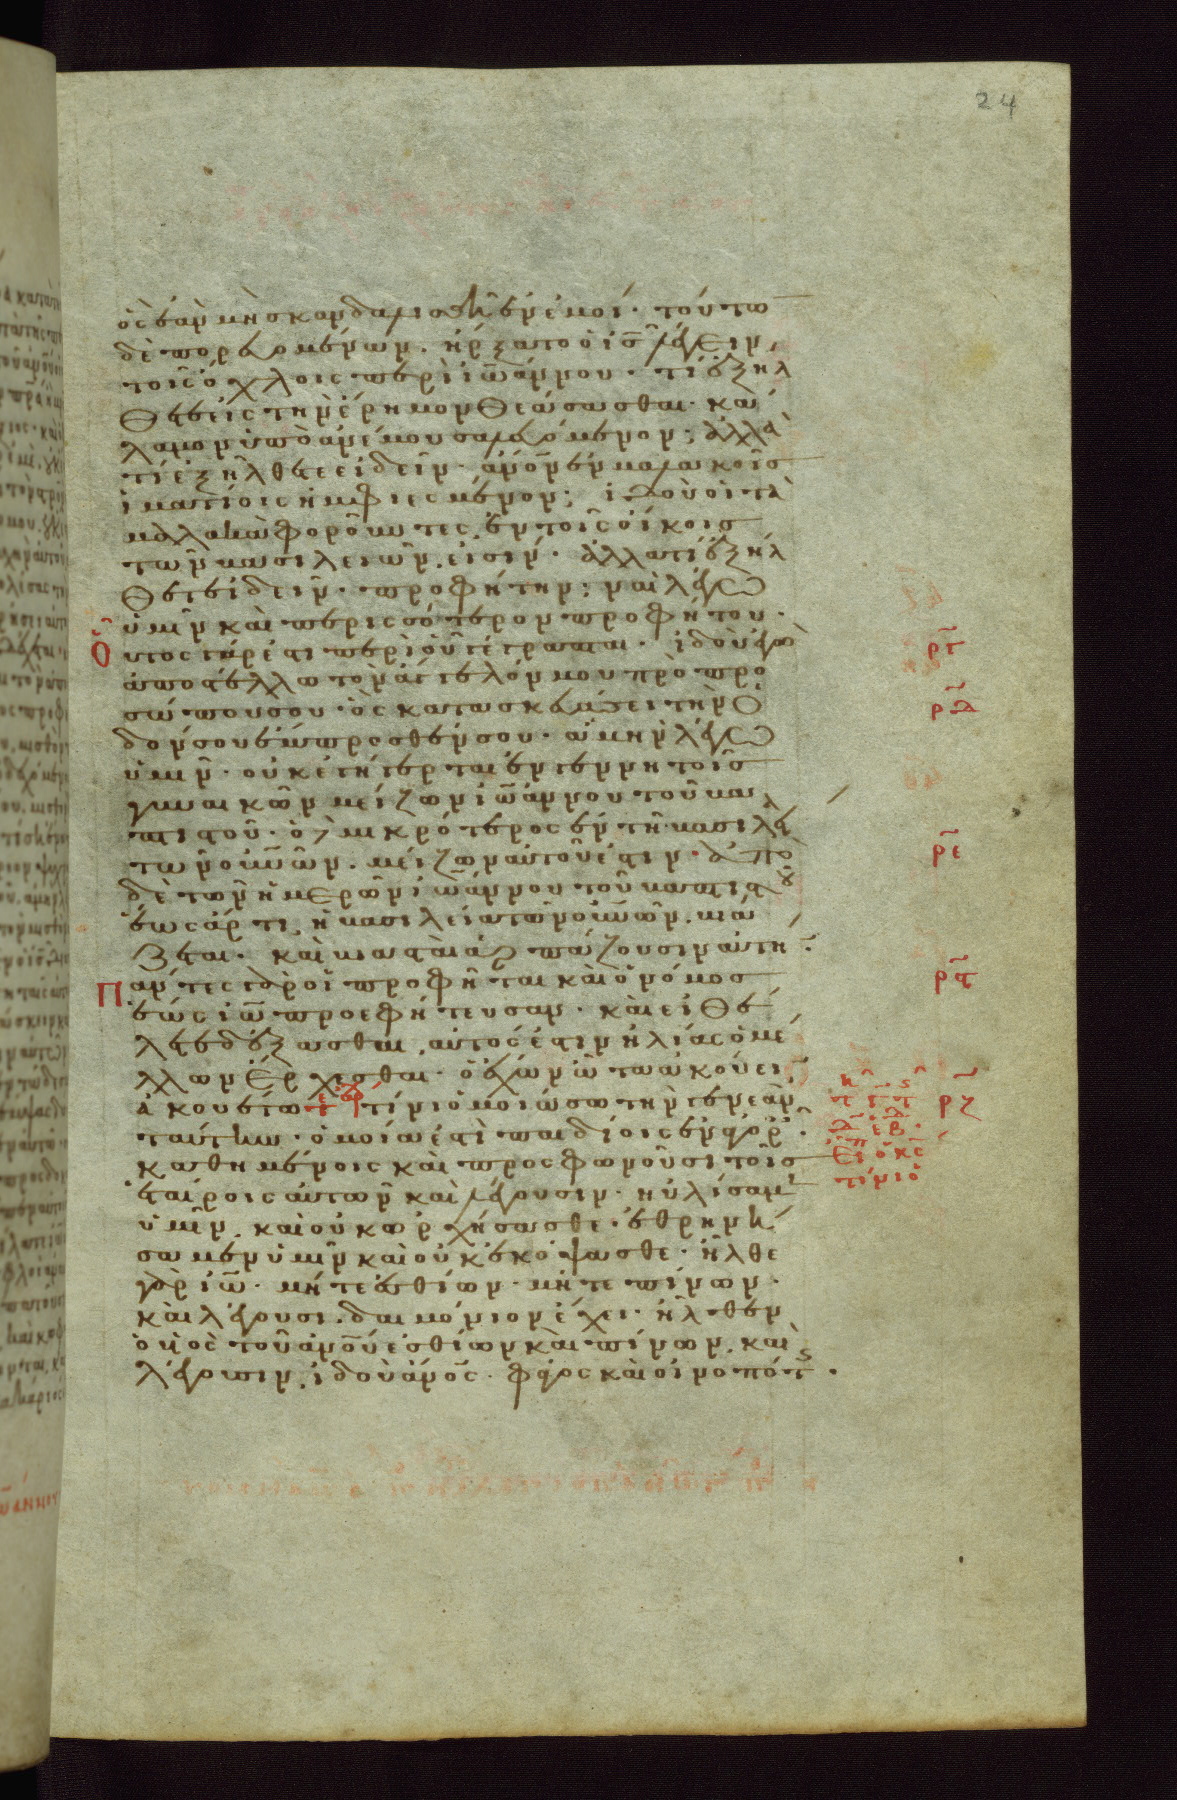 24
ὃς ἐὰν μὴ σκανδαλισθῆ ἐν ἐμοί· τούτω
δὲ πορευομένων, ἤρξατο ὁ ι̅ς̅ λέγειν,
τοῖς ὄχλοις περὶ ἰω̅άννου· τί ἐξήλ
θετε εἰς τὴν ἔρημον θεάσασθαι· κά
λαμον ὑπὸ ἀνέμου σαλευόμενον; ἀλλὰ
τί ἐξήλθετε εἰδεῖν· α̅ν̅ο̅ν̅ ἐν μαλακοῖς
ἱματίοις ἠμφιεσμένον; ἰδοὺ οἱ τὰ
μαλακὰ φοροῦντες, ἐν τοῖς οἴκοις
τῶν βασιλειῶν, εἰσίν· ἀλλὰ τί ἐξήλ
θετε ἰδεῖν· προφήτην; ναὶ λέγω
ὑμῖν καὶ περισσότερον προφήτου·
Οὗτος γάρ ἐστι περὶ οὗ γέγραπται· ἰδοὺ ἐγὼ
ἀποστέλλω τὸν ἄγγελόν μου πρὸ προ
σώπου σου· ὃς κατασκευάσει τὴν ὁ
δόν σου ἔμπροσθέν σου· ἀμὴν λέγω
ὑμῖν· οὐκ ἐγήγερται ἐν γεννητοῖς
γυναικῶν μείζων ἰω̅άννου τοῦ βα
πτιστοῦ· ὁ δὲ μικρότερος ἐν τῆ βασιλεία
τῶν ο̅υ̅ν̅ῶν, μείζων αὐτοῦ ἐστιν· ἀπὸ
δὲ τῶν ἡμερῶν ἰω̅άννου τοῦ βαπτιστοῦ
ἕως ἄρτι, ἡ βασιλεία τῶν ο̅υ̅ν̅ῶν, βιά
ζεται· καὶ βιασταὶ ἁρπάζουσιν αὐτήν·
Πάντες γὰρ οἱ προφῆται καὶ ὁ νόμος
ἕως ἰω̅ προεφήτευσαν· καὶ εἰ θέ
λετε δέξασθαι, αὐτός ἐστιν ἠλίας ὁ μέ
λλων ἔρχεσθαι· ὁ ἔχων ὦτα ἀκούειν
ἀκουέτω τίνι ὁμοιώσω τὴν γενεὰν
ταύτην· ὁμοία ἐστὶ παιδίοις ἐν ἀγορᾶ·
καθημένοις καὶ προσφωνοῦσι τοῖς
ἑταίροις αὐτῶν καὶ λέγουσιν· ηὐλήσαμεν
ὑμῖν, καὶ οὐκ ὠρχήσασθε· ἐθρηνή
σαμεν ὑμῖν καὶ οὐκ ἐκόψασθε· ἦλθε
γὰρ ἰω̅· μήτε ἐσθίων· μήτε πίνων·
καὶ λέγουσι, δαιμόνιον ἔχει· ἦλθεν
ὁ υἱὸς τοῦ α̅ν̅ο̅υ̅ ἐσθίων καὶ πίνων, καὶ
λέγουσιν, ἰδοὺ α̅ν̅ο̅ς̅· φάγος καὶ οἰνοπότης·
ργ
ρδ
ρε
ρϛ
ρζ
εἶπεν ὁ κ̅ς̅
τίνι ὁ